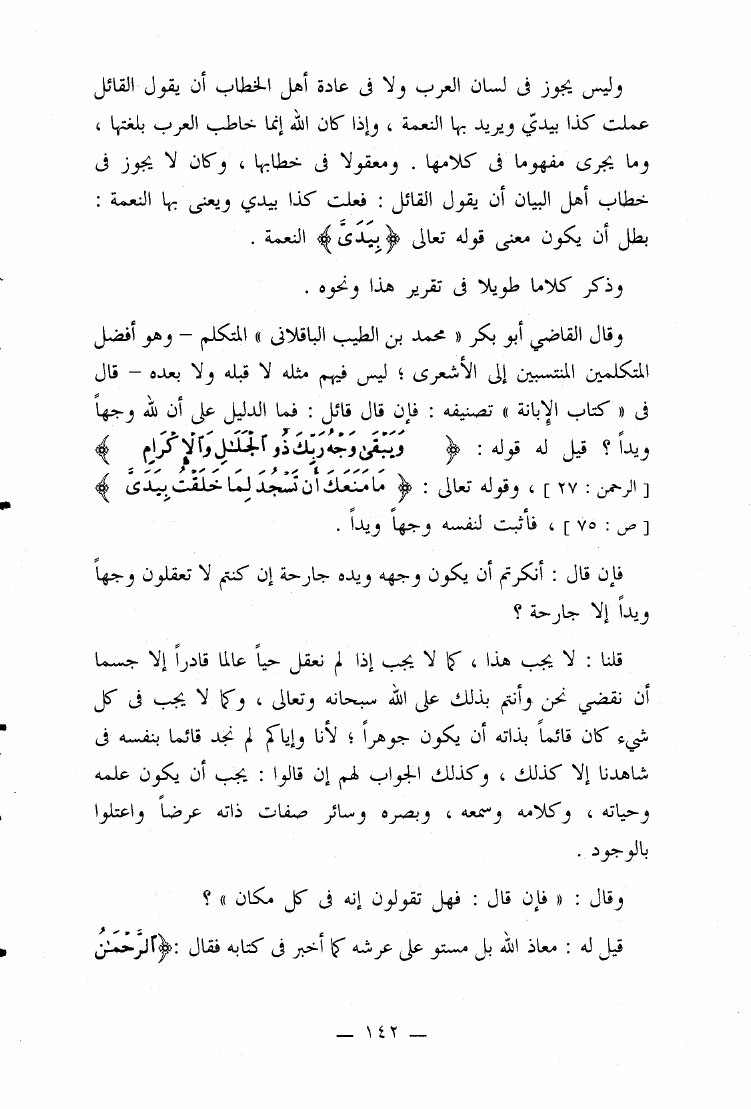 وليس يجوز فى لسان العرب ولا فى عادة أهل الخطاب أن يقول القائل
عملت كذا بيديّ ويريد بها النعمة ، وإذا كان الله إنما خاطب العرب بلغتها ،
وما يجرى مفهوما فى كلامها . ومعقولا فى خطابها ، وكان لا يجوز فى
خطاب أهل البيان أن يقول القائل : فعلت كذا بيدي ويعنى بها النعمة :
بطل أن يكون معنى قوله تعالى ﴿ بِيَدَىَّ ﴾ النعمة .
وذكر كلاما طويلا فى تقرير هذا ونحوه .
وقال القاضي أبو بكر « محمد بن الطيب الباقلانى » المتكلم – وهو أفضل
المتكلمين المنتسبين إلى الأشعرى ؛ ليس فيهم مثله لا قبله ولا بعده – قال
فى « كتاب الإبانة » تصنيفه : فإن قال قائل : فما الدليل على أن لله وجهاً
ويداً ؟ قيل له قوله : ﴿ وَيَبْقَىٰ وَجْهُ رَبِّكَ ذُو ٱلْجَلَـٰلِ وَٱلْإِكْرَامِ ﴾
[ الرحمن : ٢٧ ] ، وقوله تعالى : ﴿ مَا مَنَعَكَ أَن تَسْجُدَ لِمَا خَلَقْتُ بِيَدَىَّ ﴾
[ ص : ٧٥ ] ، فأثبت لنفسه وجهاً ويداً .
فإن قال : أنكرتم أن يكون وجهه ويده جارحة إن كنتم لا تعقلون وجهاً
ويداً إلا جارحة ؟
قلنا : لا يجب هذا ، كما لا يجب إذا لم نعقل حياً عالما قادراً إلا جسما
أن نقضي نحن وأنتم بذلك على الله سبحانه وتعالى ، وكما لا يجب فى كل
شيء كان قائماً بذاته أن يكون جوهراً ؛ لأنا وإياكم لم نجد قائما بنفسه فى
شاهدنا إلا كذلك ، وكذلك الجواب لهم إن قالوا : يجب أن يكون علمه
وحياته ، وكلامه وسمعه ، وبصره وسائر صفات ذاته عرضاً واعتلوا
بالوجود .
وقال : « فإن قال : فهل تقولون إنه فى كل مكان » ؟
قيل له : معاذ الله بل مستو على عرشه كما أخبر فى كتابه فقال :﴿ٱلرَّحْمَـٰنُ
— ١٤٢ —